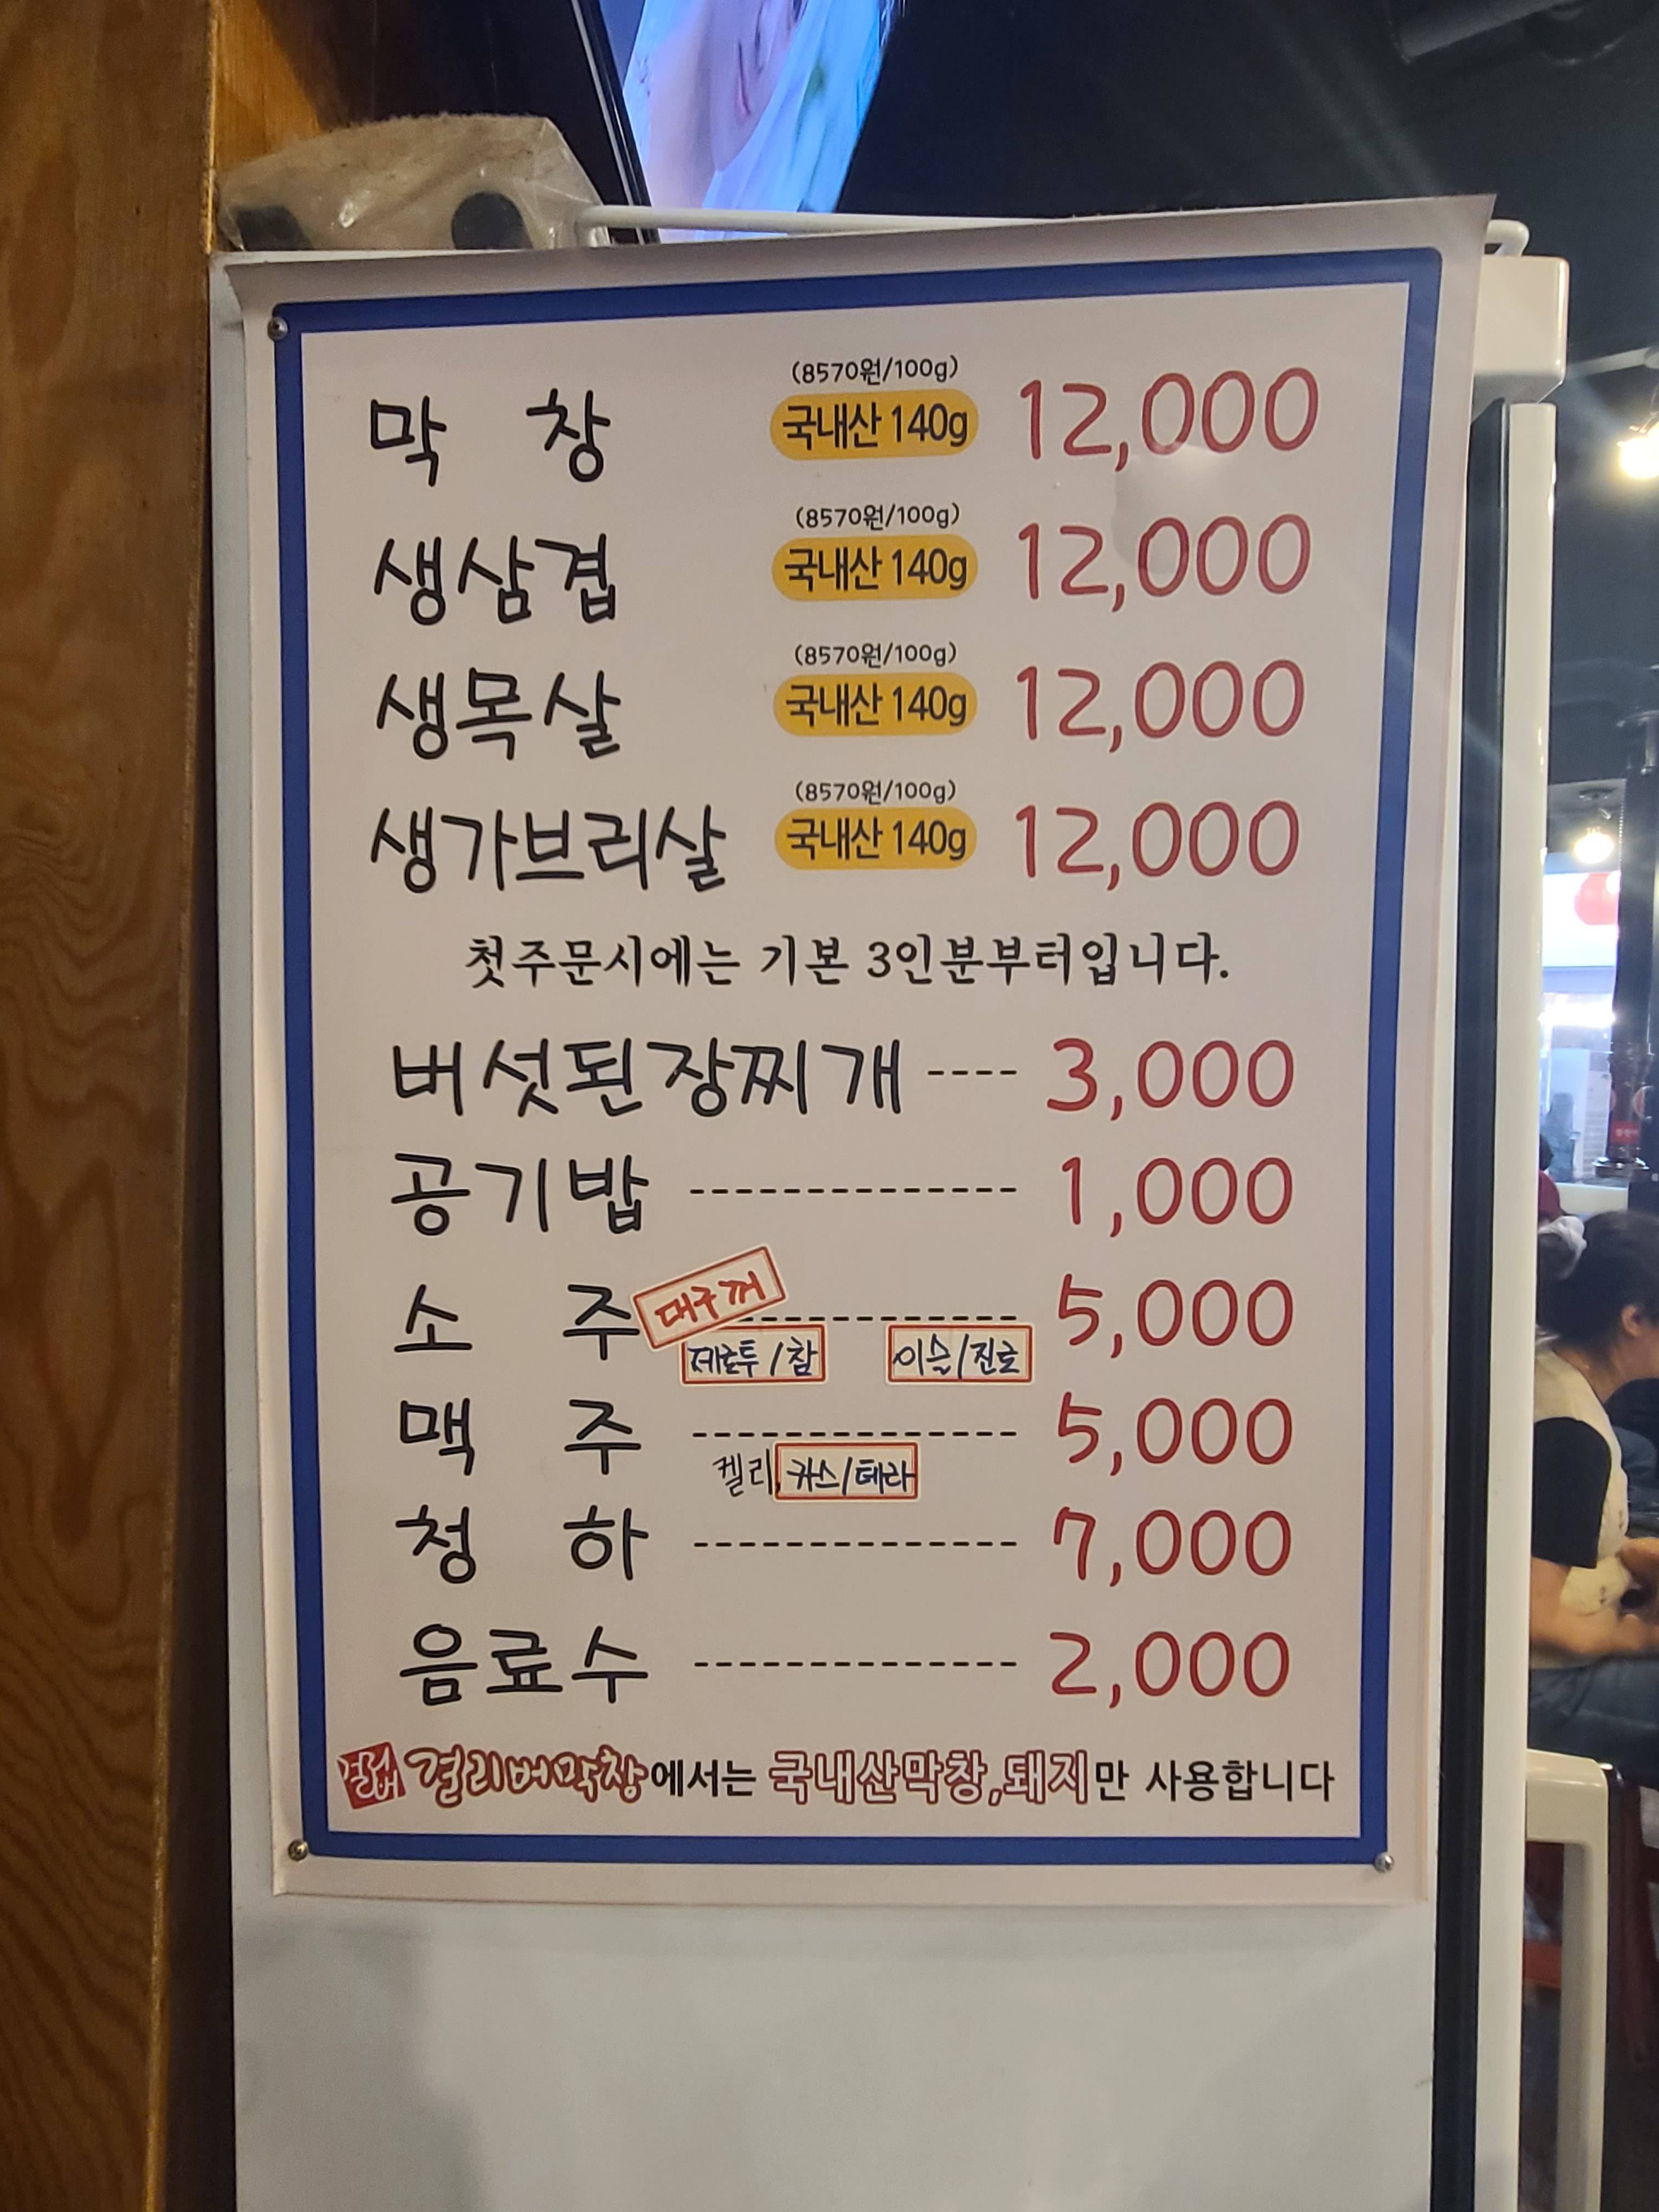 (8570원/100g)
막 창 국내산 140g 12,000
(8570원/100g)
생삼겹 국내산 140g 12,000
(8570원/100g)
생목살 국내산 140g 12,000
(8570원/100g)
생가브리살 국내산 140g 12,000
첫주문시에는 기본 3인분부터입니다.
버섯된장찌개 ---- 3,000
공기밥 -------------- 1,000
소 주 대구꺼 ------------ 5,000
제로투/참 이슬/진로
맥 주 -------------- 5,000
켈리, 카스/테라
청 하 -------------- 7,000
음료수 -------------- 2,000
걸리버막창에서는 국내산막창,돼지만 사용합니다